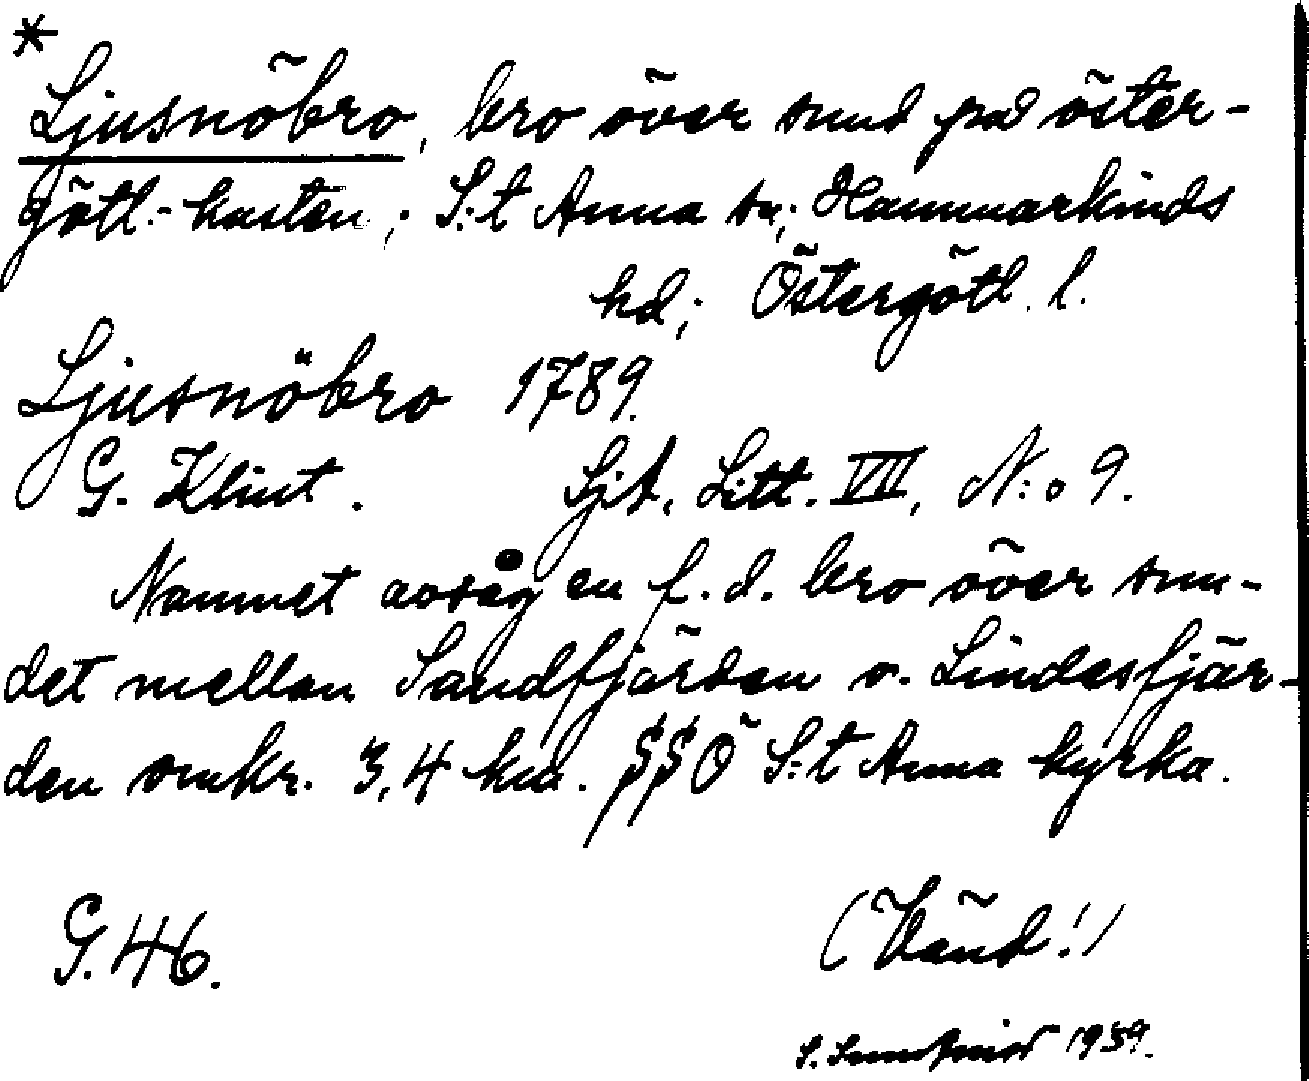 *
Ljusnöbro, bro över sund på öster-
götl.-kusten; S:t Anna sn; Hammarkinds
hd; Östergötl. l.
Ljusnöbro 1789.
G. Klint. Sjk. Litt. VII, N:o 9.
Namnet avsåg en f.d. bro över sun-
det mellan Sandfjärden o. Lindesfjär-
den omkr. 3,4 km. SSÖ S:t Anna kyrka.
G. 46.
(Vänd!)
S. 1939.